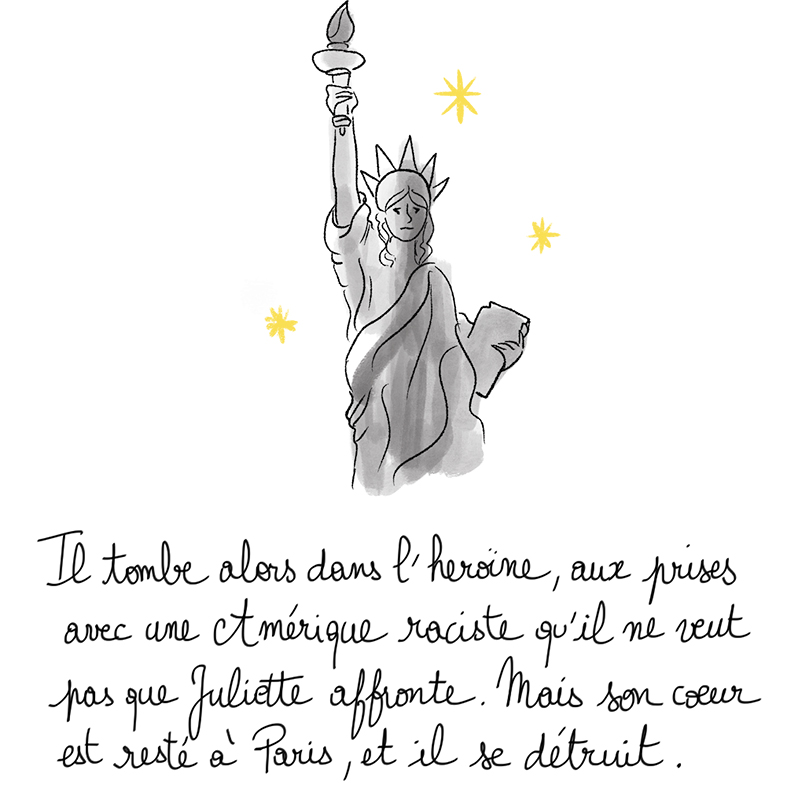 Il tombe alors dans l'heroïne, aux prises
avec une Amérique raciste qu'il ne veut
pas que Juliette affronte. Mais son cœur
est resté à Paris, et il se détruit.